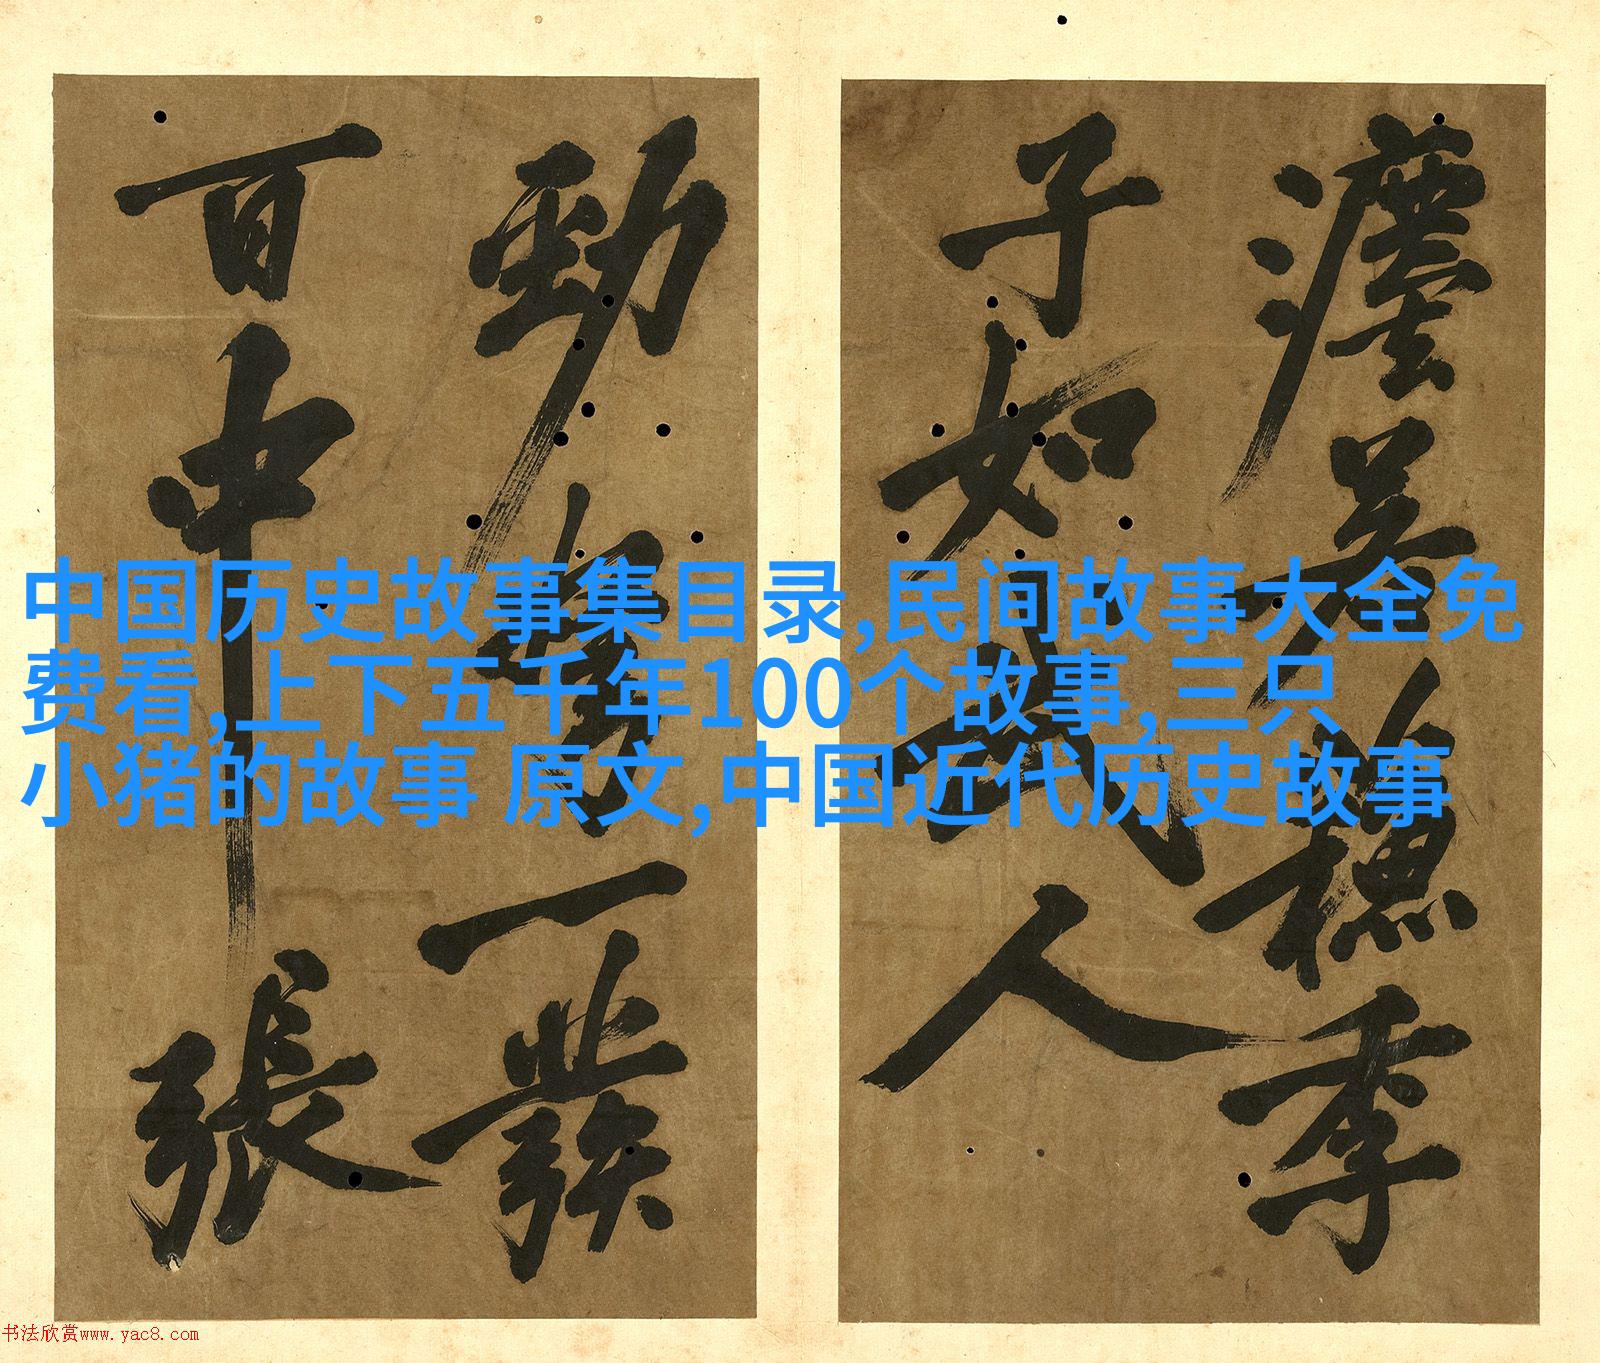 季
子如武人
勁弩一發
百中張
中国历史故事集目录,民间故事大全免
费看,上下五千年100个故事,三只
小猪的故事 原文,中国近代历史故事
书法欣赏www.yac8.com